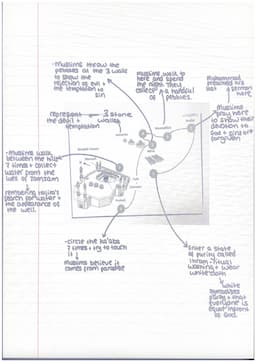 -Muslims throw the
pebbles at the 3 walls
to show the
rejection of evil +
the temptation to
sin
Muslims walk to
here and spend
the night. They
collect a handful
of pebbles.
Muhammad
preached his
last sermon
here.
Muslims
pray here
to show their
devotion to
God + sins are
forgiven
represent
the devil +
temptation
3 stone
walls
-Muslims walk
between the hills
7 times + collect
water from the
well of zamzam
remembering Hajira's
search for water +
the appearance of
the well.
-circle the Ka'aba
7 times + try to touch
it
Muslims believe it
comes from paradise
Enter a state
of purity called
Ihram - ritual
washing + wear
white cloth
white
symbolises
purity + that
everyone is
equal infront of
God.